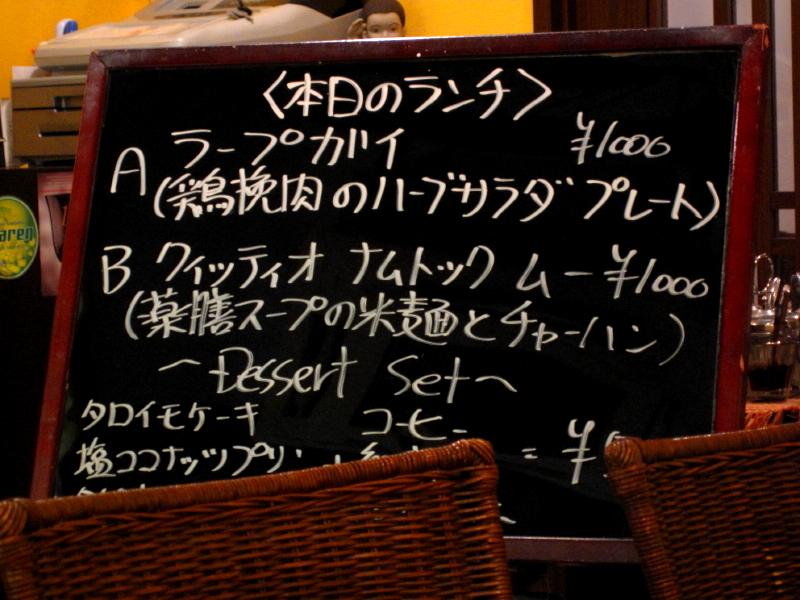 〈本日のランチ〉
A ラープガイ ¥1000
(鶏挽肉のハーブサラダプレート)
B クィッティオ ナムトック ムー ¥1000
(薬膳スープの米麺とチャーハン)
～Dessert Set～
タロイモケーキ コーヒー
塩ココナッツプリン = ¥
aren